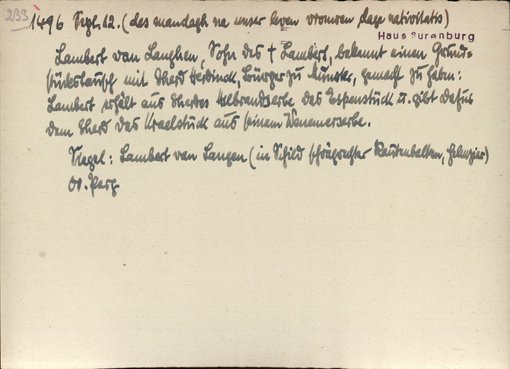 233
1496 Sept. 12. (des mandagh na unser leven vrowen dage nativitatis)
Haus Surenburg
Lambert van Langhen, Sohn des † Lambert, bekennt einen Grund-
stückstausch mit Everd Herdinck, Bürger zu Münster, gemacht zu haben:
Lambert erhält aus Everdes Albrandserbe das Espenstück u. gibt dafür
dem Everd das Kraelstück aus seinem Wenemerserbe.
Siegel: Lambert van Langen (in Schild schrägrechter Rautenbalken, Helmzier)
Or. Perg.